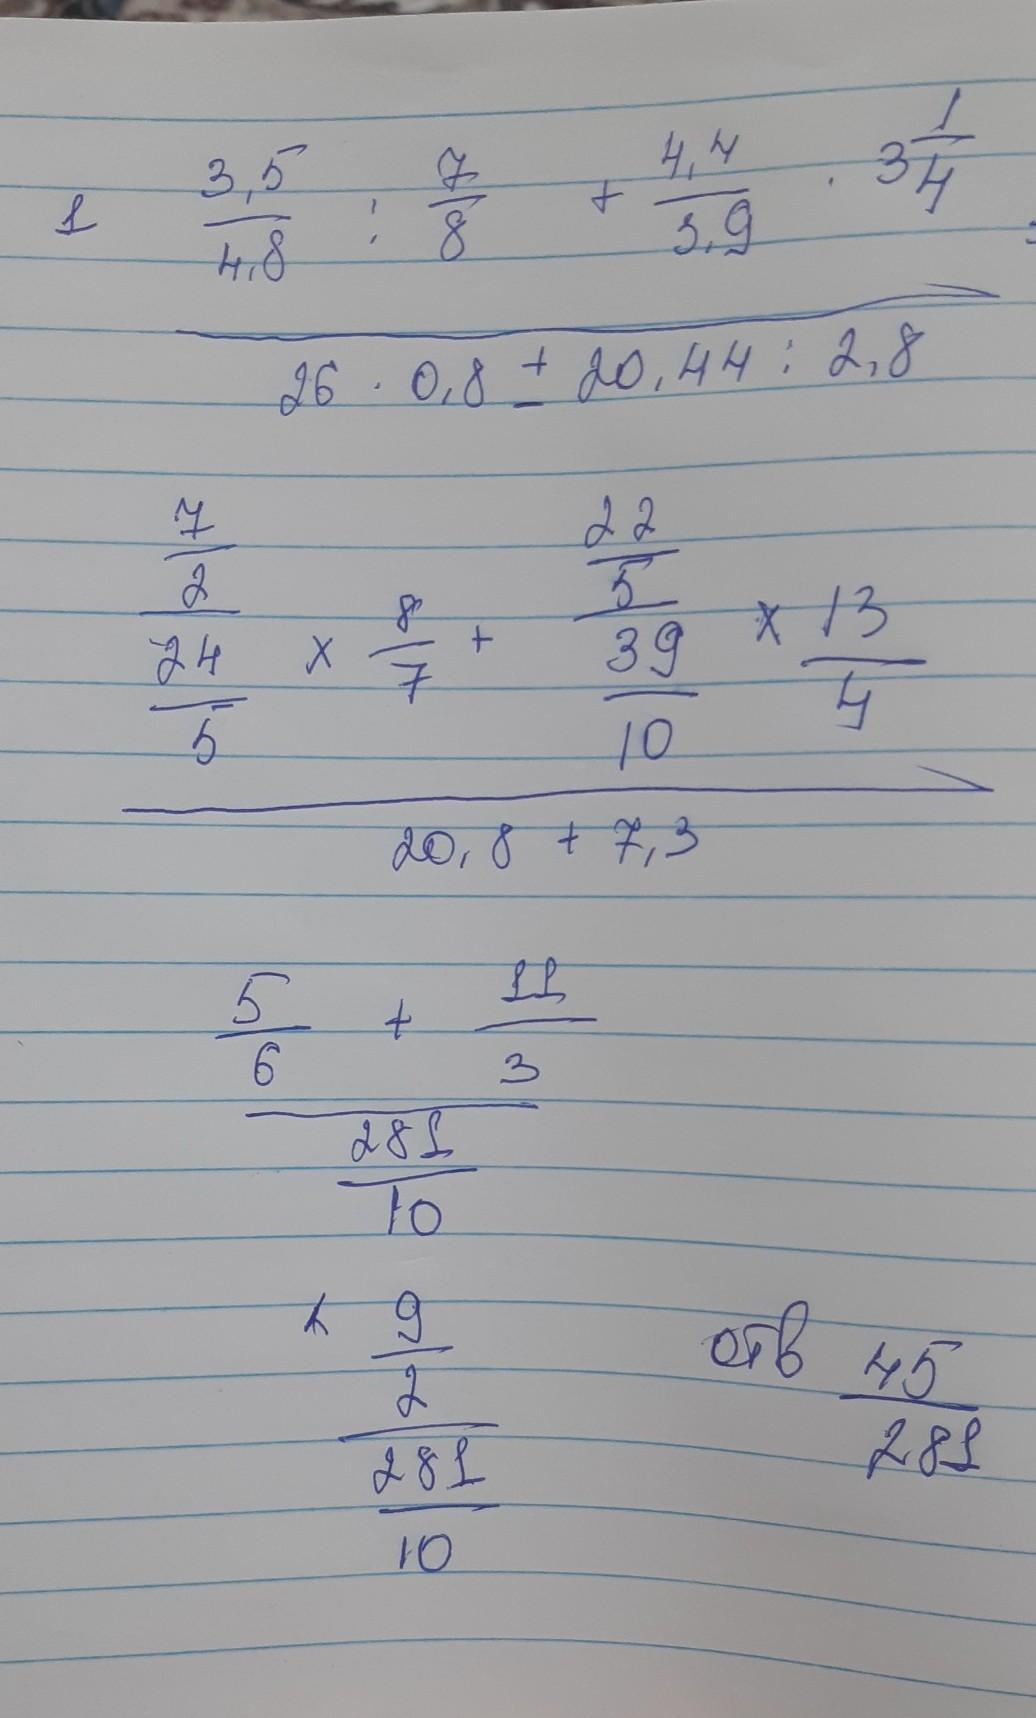 1 3,5/4,8 : 7/8 + 4,4/3,9 · 3 1/4
26 · 0,8 ± 20,44 : 2,8
7/2 / 24/5 x 8/7 + 22/5 / 39/10 x 13/4
20,8 + 7,3
5/6 + 11/3
281/10
9/2 / 281/10
отв 45/281